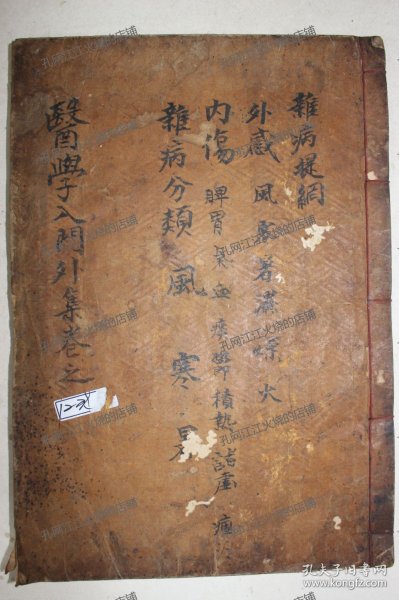 雜病提綱
外感 風寒暑濕燥火
內傷 脾胃 氣 血 痰 鬱 積熱 諸虛 
雜病分類 風 寒 暑
醫學入門外集卷之
12元
孔夫子旧书网
www.kongfz.com
孔网江江火烧的店铺